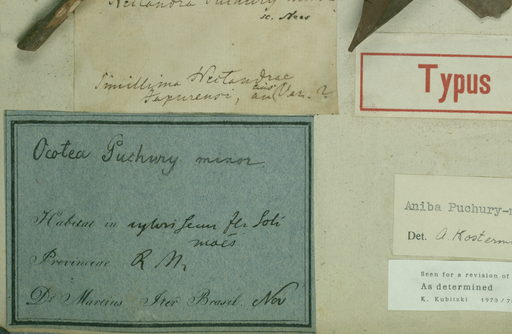 Nectandra Puchury minor
sc. Nees
Simillima Nectandrae
an Var. ?
Typus
Ocotea Puchury minor.
Habitat in sylvis secus flv Soli
moës
Provinciae R. N.
Dr Martius Iter Brasil. Nov
Aniba Puchury-m
Det. A. Kosterm
Seen for a revision of
As determined
K. Kubitzki 1970/7